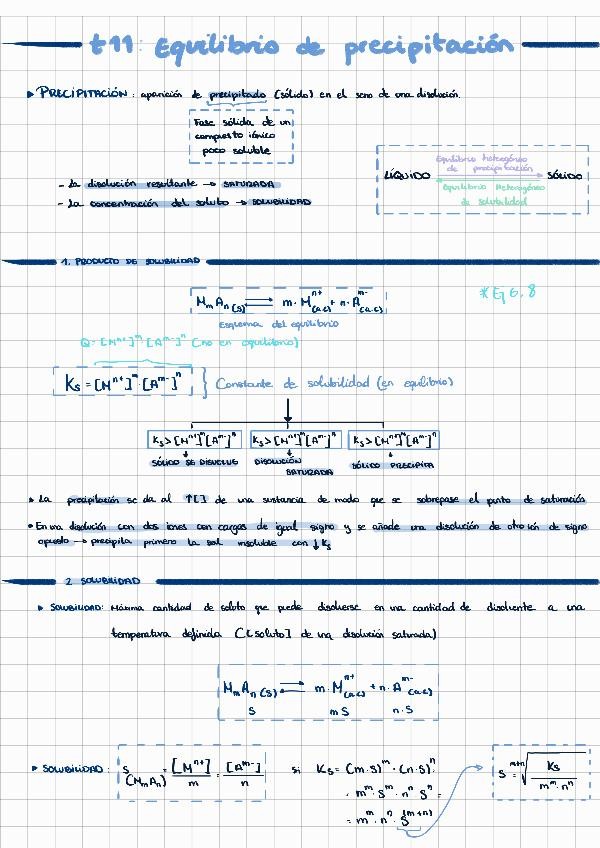 t11: Equilibrio de precipitación
▸ PRECIPITACIÓN: aparición de precipitado (sólido) en el seno de una disolución.
Fase sólida de un
compuesto iónico
poco soluble
- La disolución resultante → SATURADA
- La concentración del soluto → SOLUBILIDAD
Equilibrio heterogéneo
de precipitación
LÍQUIDO ⇄ SÓLIDO
Equilibrio Heterogéneo
de solubilidad
1. PRODUCTO DE SOLUBILIDAD
MmAn(s) ⇄ m·M^n+(ac) + n·A^m-(ac)
* Ej 6, 8
Esquema del equilibrio
Q = [M^n+]^m·[A^m-]^n (no en equilibrio)
Ks = [M^n+]^m·[A^m-]^n } Constante de solubilidad (en equilibrio)
Ks > [M^n+]^m[A^m-]^n Ks > [M^n+]^m[A^m-]^n Ks > [M^n+]^m[A^m-]^n
SÓLIDO SE DISUELVE DISOLUCIÓN SATURADA SÓLIDO PRECIPITA
• La precipitación se da al ↑[ ] de una sustancia de modo que se sobrepase el punto de saturación
• En una disolución con dos iones con cargas de igual signo y se añade una disolución de otro ión de signo
opuesto → precipita primero la sal insoluble con ↓Ks
2. SOLUBILIDAD
▸ SOLUBILIDAD: Máxima cantidad de soluto que puede disolverse en una cantidad de disolvente a una
temperatura definida ([soluto] de una disolución saturada)
MmAn(s) ⇄ m·M^n+(ac) + n·A^m-(ac)
S mS n·S
▸ SOLUBILIDAD: S(MmAn) = [M^n+]/m = [A^m-]/n si Ks = (m·S)^m · (n·S)^n = S = ^(m+n)√(Ks/(m^m·n^n))
= m^m·S^m·n^n S^n =
= m^m·n^n·S^(m+n)